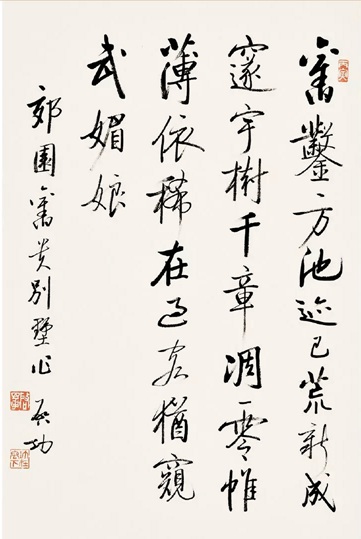 舊鑿方池迹已荒新成
邃宇樹千章凋零帷
薄依稀在過客猶窺
武媚娘
郊園舊貴別墅作 啟功